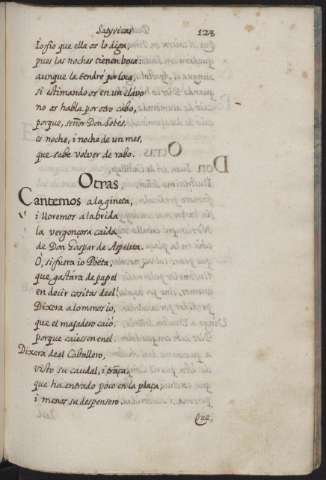 Satyricas 123
Io fio que ella os lo diga,
pues las noches tienen boca:
aunque la tendrè por loca,
si estimandoos en un clavo
no os habla, por otro cabo,
porque, señor Don Sotes.
es noche, i noche de un mes,
que sabe volver de rabo.
Otras
Cantemos a la gineta,
i lloremos a la brida
la vergonçosa caida
de Don Gaspar de Aspeleta.
O, si fuera io Pöeta,
que gastara de papel
en decir cositas del!
Dixera a lo menos io,
que el majadero caiò
porque caiessen en el.
Dixera del Caballero,
visto su caudal, i traça,
que ha entrado poco en la plaça,
i menos su despensero,
que